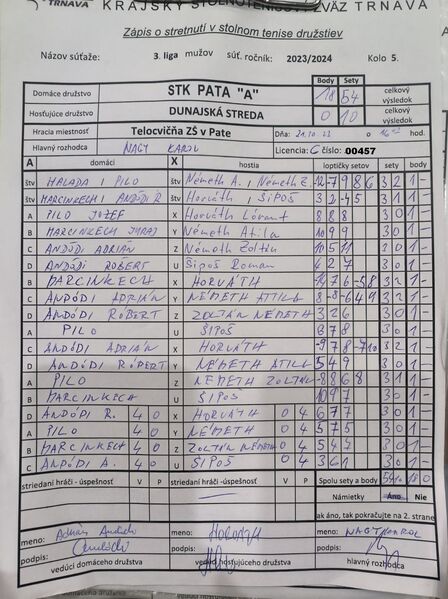 TRNAVA KRAJSKÝ STOLNOTENISOVÝ ZVÄZ TRNAVA
Zápis o stretnutí v stolnom tenise družstiev
Názov súťaže: 3. liga mužov súť. ročník: 2023/2024 Kolo 5.
Body Sety
Domáce družstvo STK PATA "A" 18 54 celkový výsledok
Hosťujúce družstvo DUNAJSKÁ STREDA 0 10 celkový výsledok
Hracia miestnosť Telocvičňa ZŠ v Pate Dňa:
Hlavný rozhodca NAGY KAROL Licencia: C číslo: 00457
A domáci X hostia loptičky setov sety body
štv HALADA / PILO štv Németh A. / Németh Z. -12 7 9 8 6 3 2 1 -
štv MARCINKECH / ANDÓDI R štv Horváth / SIPOŠ 3 1 1 -
A PILO JOZEF X Horváth Lórant 8 8 8 3 0 1 -
B MARCINKECH JURAJ Y Németh Atila 10 9 9 3 0 1 -
C ANDÓDI ADRIÁN Z Németh Zoltán 10 5 11 3 0 1 -
D ANDÓDI RÓBERT U Sipoš Roman 4 2 7 3 0 1 -
B MARCINKECH X HORVÁTH 3 2 1 -
C ANDÓDI ADRIÁN Y NÉMETH ATILL 8 -8 -6 4 9 3 2 1 -
D ANDÓDI RÓBERT Z ZOLTÁN NÉMETH 3 2 6 3 0 1 -
A PILO U SIPOŠ 8 7 8 3 0 1 -
C ANDÓDI ADRIÁN X HORVÁTH -9 7 8 -7 10 3 2 1 -
D ANDÓDI RÓPERT Y NEMETH ATILL 5 4 9 3 0 1 -
A PILO Z NEMETH ZOLTÁN -8 8 6 8 3 1 1 -
B MARCINKECH U SIPOŠ 10 9 7 3 0 1 -
D ANDÓDI R. 4 0 X HORVÁTH 0 4 6 7 7 3 0 1 -
A PILO 4 0 Y NÉMETH 0 4 5 7 5 3 0 1 -
B MARCINKECH 4 0 Z ZOLTÁN NÉMETH 0 4 5 4 7 3 0 1 -
C ANDÓDI A. 4 0 U SIPOŠ 0 4 3 6 1 3 0 1 -
striedaní hráči - úspešnosť V P striedaní hráči - úspešnosť V P Spolu sety a body 54 10 18 0
Námietky Áno Nie
ak áno, tak pokračujte na 2. strane
meno: meno: meno: NAGY KAROL
podpis: podpis: podpis:
vedúci domáceho družstva vedúci hosťujúceho družstva hlavný rozhodca